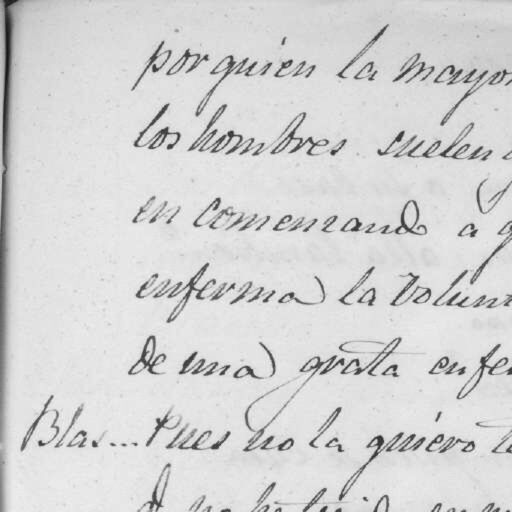 por quien la mayor
los hombres suelen
en comenzando á
enferma la volunt
de una grata enfer
Blas... Pues no la quiero